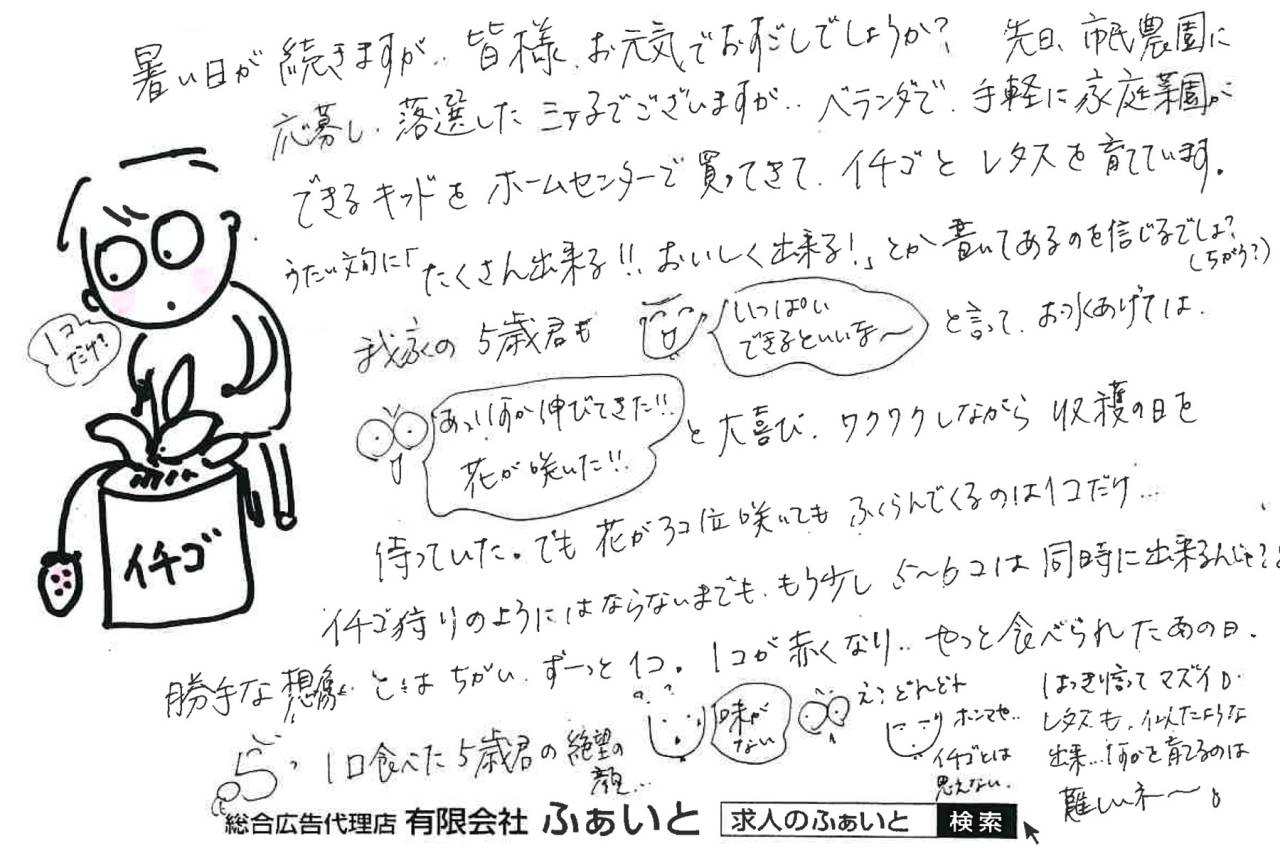 暑い日が続きますが‥皆様、お元気でおすごしでしょうか？　先日、市民農園に
応募し、落選したミッ子でございますが‥ベランダで、手軽に家庭菜園が
できるキッドをホームセンターで買ってきて、イチゴとレタスを育てています。
うたい文句に「たくさん出来る!!おいしく出来る!」とか書いてあるのを信じるでしょ？
(ちがう？)
我家の5歳君も
いっぱい
できるといいな〜
と言って、お水あげては、
1コ
だけ?
あっ!なんか伸びてきた!!
花が咲いた!!
と大喜び、ワクワクしながら収穫の日を
待っていた。でも花が3コ位咲いてもふくらんでくるのは1コだけ…
イチゴ狩りのようにはならないまでも、もう少し5〜6コは同時に出来るんじゃ??
勝手な想像とはちがい、ずーっと1コ。1コが赤くなり‥やっと食べられたあの日。
イチゴ
1口食べた5歳君の絶望の
顔…
味が
ない
え?どれどれ
ホンマや‥
イチゴとは
思えない。
はっきり言ってマズイ。
レタスも、似たような
出来…なんかを育てるのは
難しいネ〜。
総合広告代理店 有限会社 ふぁいと 求人のふぁいと 検索